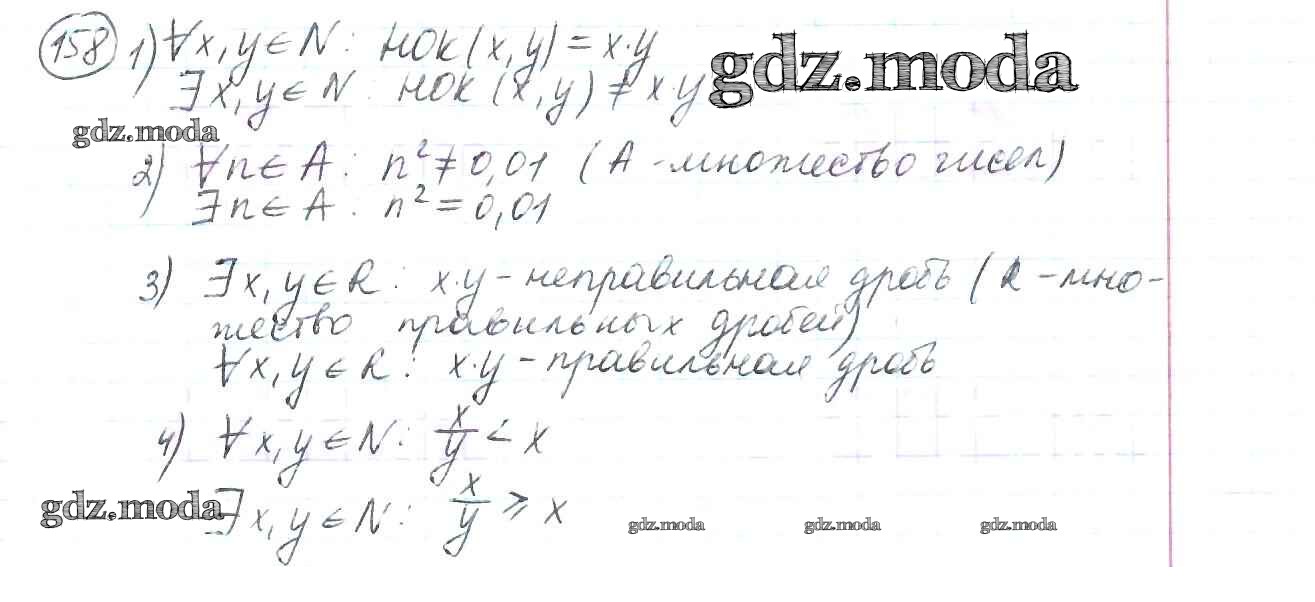 158 1) ∀x, y ∈ N: НОК(x, y) = x·y
gdz.moda
∃x, y ∈ N: НОК(x, y) ≠ x·y
gdz.moda
2) ∀n ∈ A: n² ≠ 0,01 (A - множество чисел)
∃n ∈ A: n² = 0,01
3) ∃x, y ∈ R: x·y - неправильная дробь (R - мно-
жество правильных дробей)
∀x, y ∈ R: x·y - правильная дробь
4) ∀x, y ∈ N: x/y < x
gdz.moda
∃x, y ∈ N: x/y ⩾ x
gdz.moda gdz.moda gdz.moda